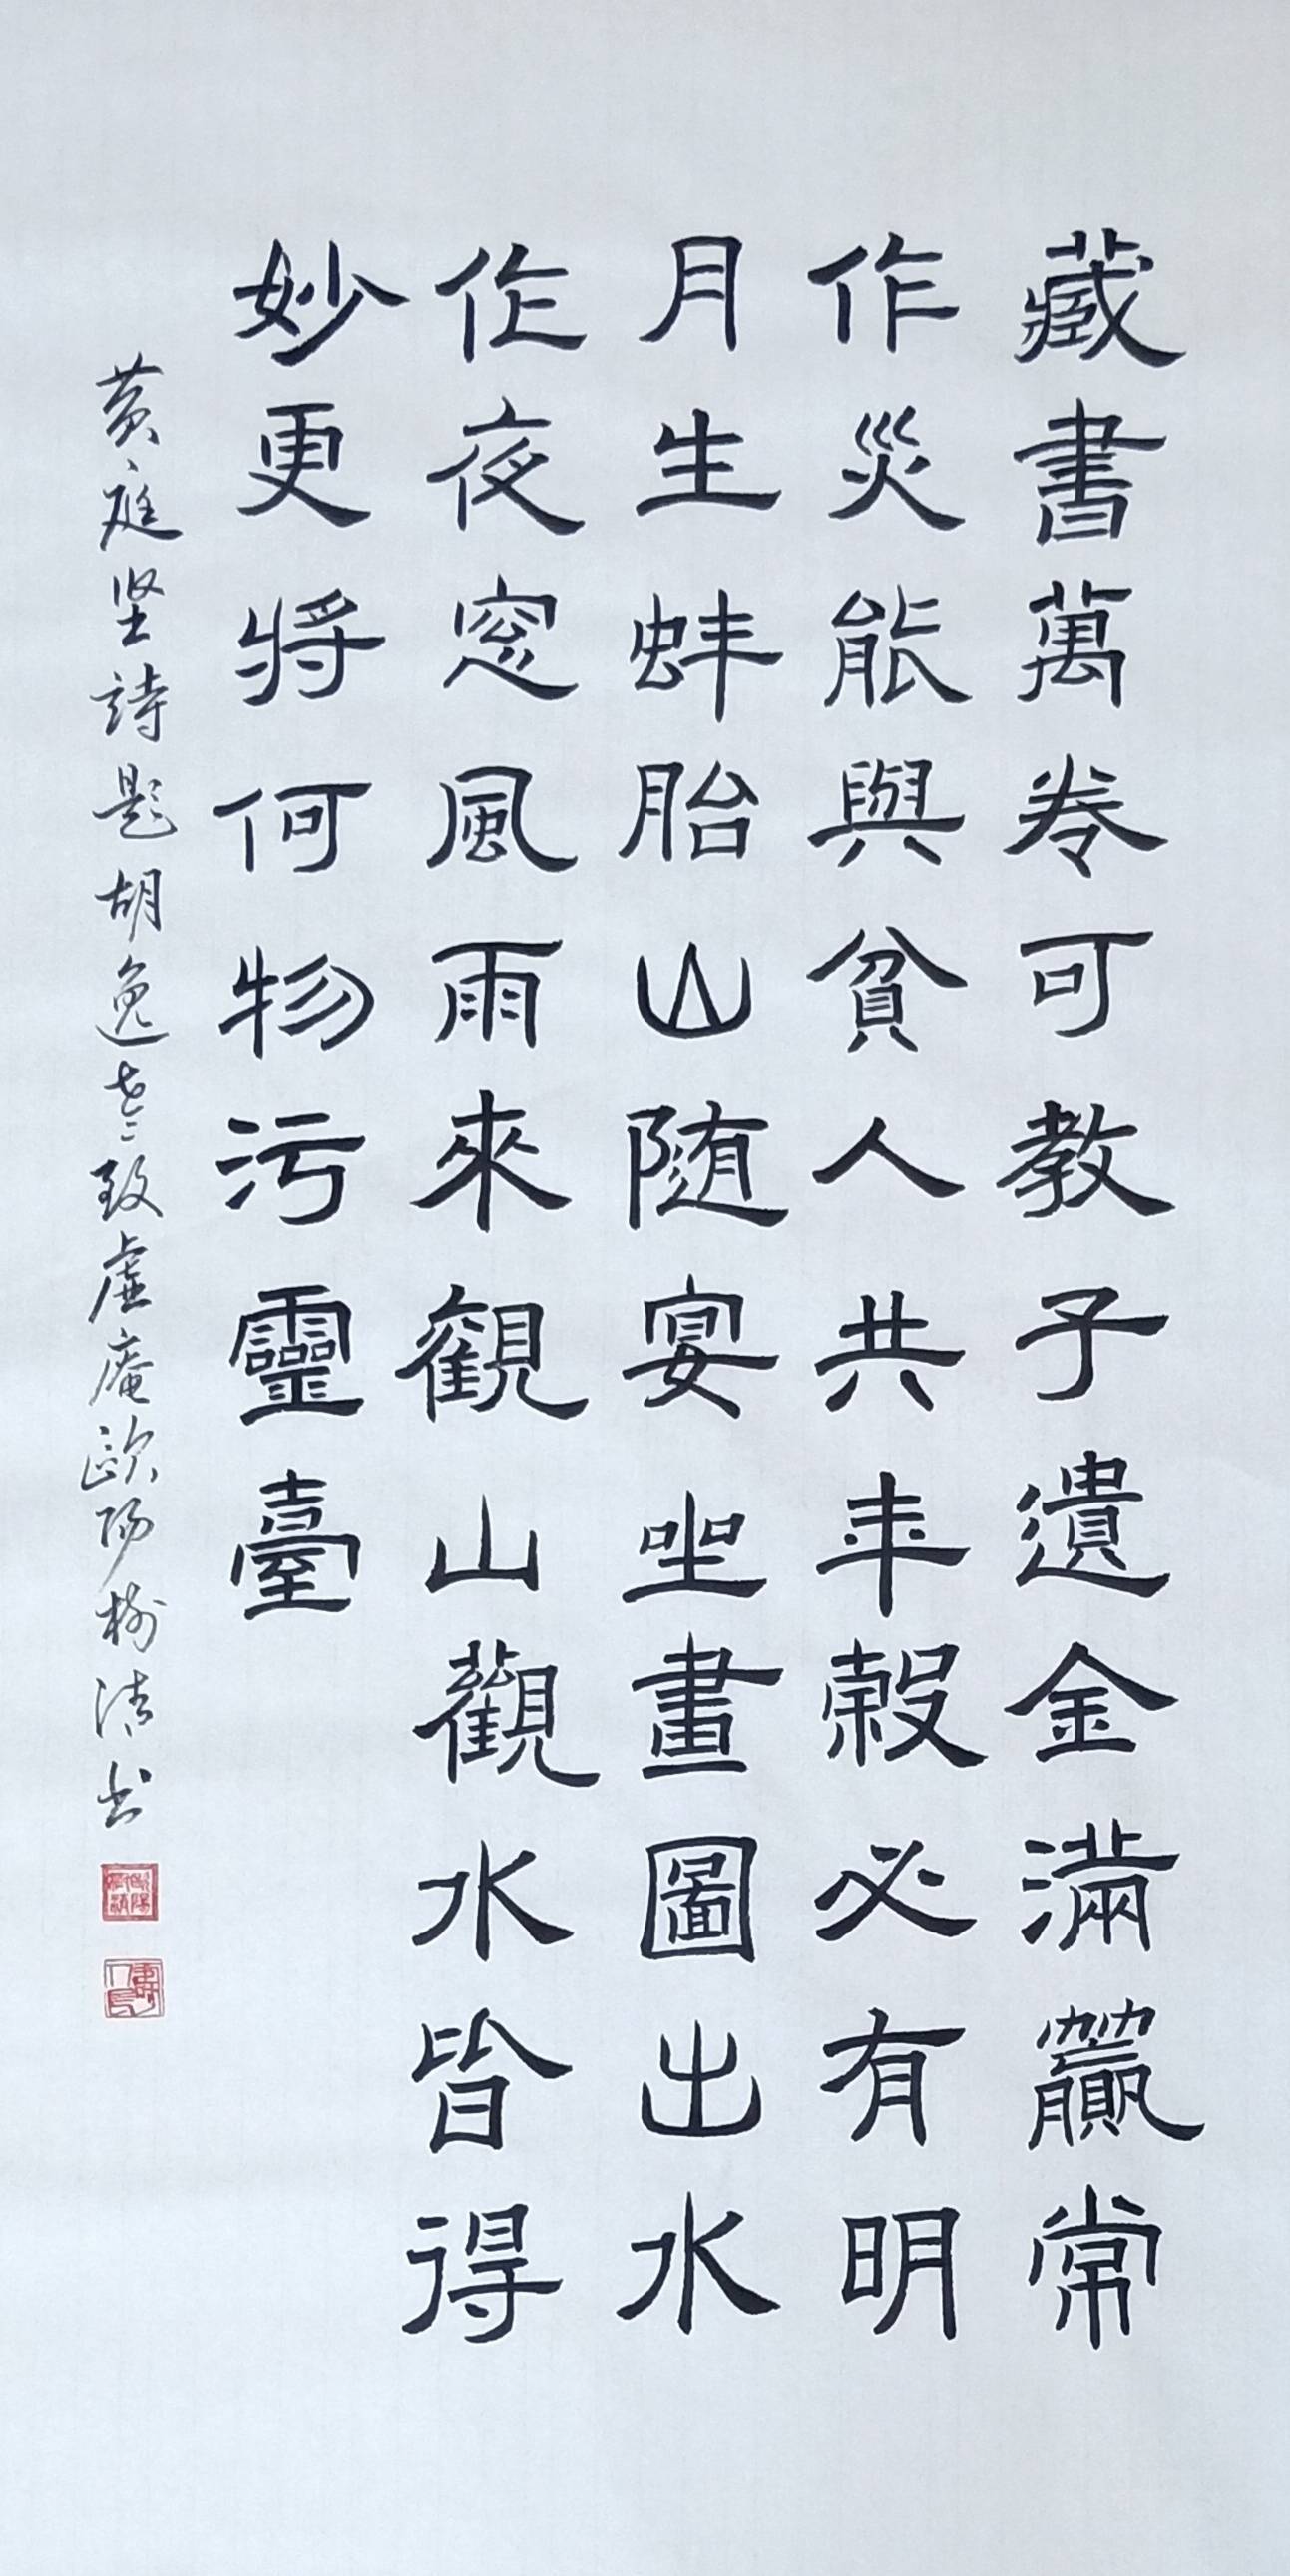 藏書萬卷可教子遺金滿籯常
作災能與貧人共年穀必有明
月生蚌胎山隨宴坐畫圖出水
作夜窓風雨來觀山觀水皆得
妙更將何物污靈臺
黄庭坚詩題胡逸老致虛庵歐陽樹清书